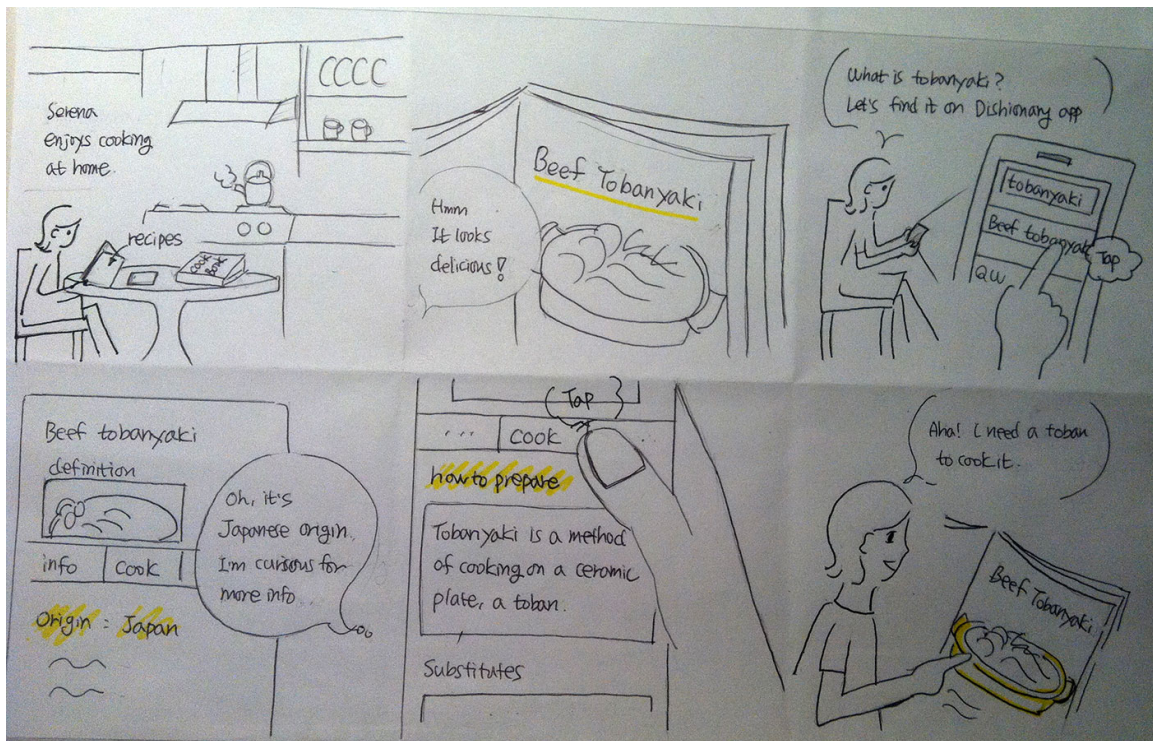 Serena
enjoys cooking
at home.
recipes
COOK
BOOK
Beef Tobanyaki
Hmm
It looks
delicious!
What is tobanyaki?
Let's find it on Dishionary app
tobanyaki
Beef tobanyaki
Tap
QW
Beef tobanyaki
definition
info
cook
Origin : Japan
Oh, it's
Japanese origin.
I'm curious for
more info
Tap
... cook
how to prepare
Tobanyaki is a method
of cooking on a ceramic
plate, a toban.
Substitutes
Aha! I need a toban
to cook it.
Beef Tobanyaki